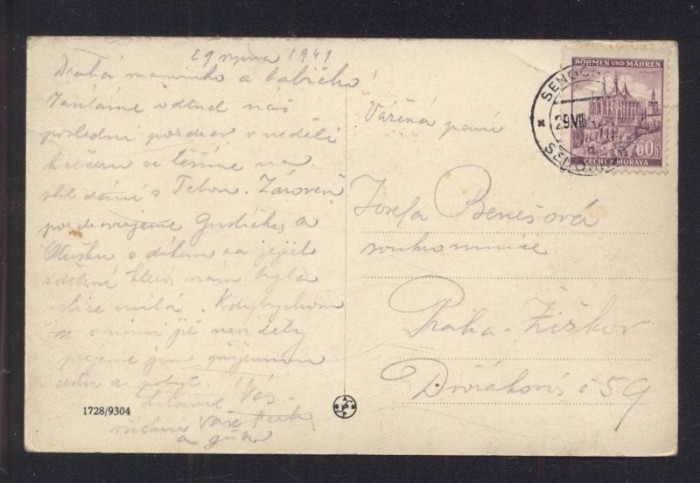 29 srpna 1941
Drahá maminko a babičko!
Zasíláme odtud náš
poslední pozdrav v neděli
k večeru se těšíme na
shledání s Tebou. Zároveň
pozdravujeme a
s díkem za jejich
sdělení nám byla
velice milá. Kdybychom
se s nimi již neviděly
přejeme jim příjemnou
cestu a pobyt.
Líbáme Vás
všichni Vaše
a
1728/9304
Vážená paní
Josefa Benešová
soukromnice
Praha-Žižkov
Dvořákova č 59
BÖHMEN UND MÄHREN
60 h
ČECHY A MORAVA
29.VIII